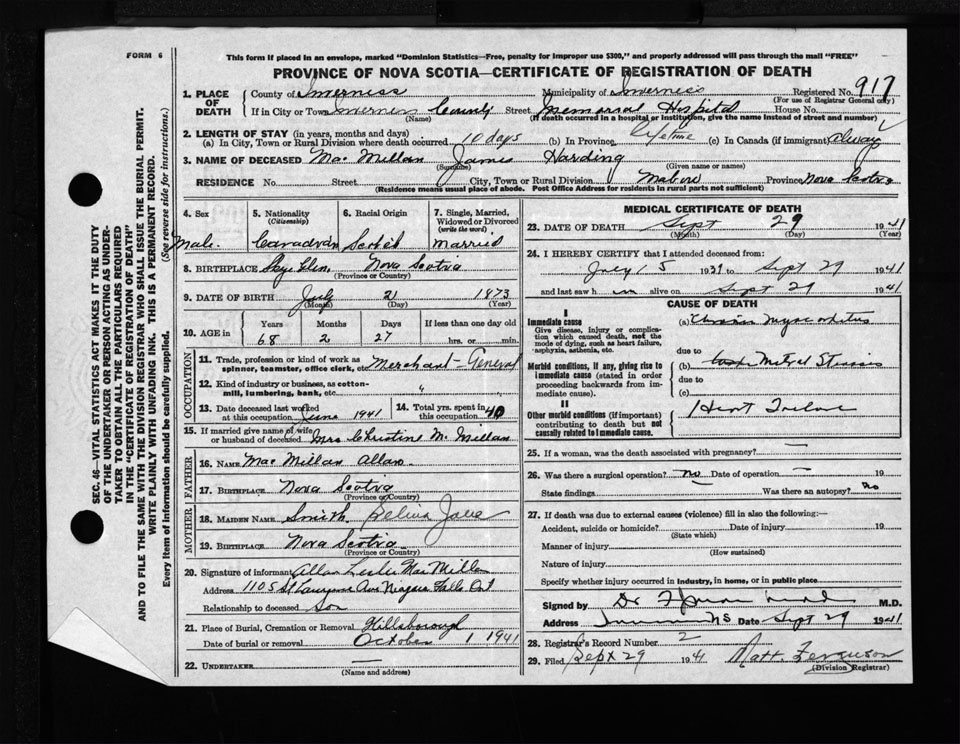 FORM 6
This form if placed in an envelope, marked "Dominion Statistics—Free, penalty for improper use $300," and properly addressed will pass through the mail "FREE"
PROVINCE OF NOVA SCOTIA—CERTIFICATE OF REGISTRATION OF DEATH
1. PLACE OF DEATH County of Inverness Municipality of Inverness Registered No. 917
(For use of Registrar General only)
If in City or Town Inverness County Street Memorial Hospital House No.
(Name) (If death occurred in a hospital or institution, give the name instead of street and number)
2. LENGTH OF STAY (in years, months and days)
(a) In City, Town or Rural Division where death occurred 10 days (b) In Province, Lifetime (c) In Canada (if immigrant) alway
3. NAME OF DECEASED Mac Millan James Harding
(Surname) (Given name or names)
RESIDENCE No. Street City, Town or Rural Division Mabou Province Nova Scotia
(Residence means usual place of abode. Post Office Address for residents in rural parts not sufficient)
4. Sex 5. Nationality (Citizenship) 6. Racial Origin 7. Single, Married, Widowed or Divorced (write the word)
Male Canadian Scotch Married
8. BIRTHPLACE Skye Glen, Nova Scotia
(Province or Country)
9. DATE OF BIRTH July 2 1873
(Month) (Day) (Year)
10. AGE in Years Months Days If less than one day
68 2 27 hrs. or min.
OCCUPATION
11. Trade, profession or kind of work as spinner, teamster, office clerk, etc. Merchant - General
12. Kind of industry or business, as cotton-mill, lumbering, bank, etc. "
13. Date deceased last worked at this occupation June 1941 14. Total yrs. spent in this occupation 40
15. If married give name of wife or husband of deceased Mrs Christine McMillan
FATHER
16. NAME Mac Millan Allan
17. BIRTHPLACE Nova Scotia
(Province or Country)
MOTHER
18. MAIDEN NAME Smith Jane
19. BIRTHPLACE Nova Scotia
(Province or Country)
20. Signature of informant Allan Leslie MacMillan
Address 1105 St Lawrence Ave Niagara Falls Ont
Relationship to deceased Son
21. Place of Burial, Cremation or Removal Hillsborough
Date of burial or removal October 1 1941
22. UNDERTAKER —
(Name and address)
MEDICAL CERTIFICATE OF DEATH
23. DATE OF DEATH Sept 29 1941
(Month) (Day) (Year)
24. I HEREBY CERTIFY that I attended deceased from:
July 15 1939 to Sept 29 1941
and last saw h im alive on Sept 29 1941
CAUSE OF DEATH
I
Immediate cause (a) Chronic myocarditis
Give disease, injury or complication which caused death, not the mode of dying, such as heart failure, asphyxia, asthenia, etc.
due to
Morbid conditions, if any, giving rise to immediate cause (stated in order proceeding backwards from immediate cause). (b) Mitral Stenosis
due to
(c)
II
Other morbid conditions (if important) contributing to death but not causally related to immediate cause. Heart Failure
25. If a woman, was the death associated with pregnancy? —
26. Was there a surgical operation? no Date of operation — 19
State findings Was there an autopsy? No
27. If death was due to external causes (violence) fill in also the following:—
Accident, suicide or homicide? Date of injury 19
(State which)
Manner of injury
(How sustained)
Nature of injury
Specify whether injury occurred in industry, in home, or in public place
Signed by Dr M.D.
Inverness NS Date Sept 29 1941
28. Registrar's Record Number 2
29. Filed Sept 29 1941 Matt. Ferguson
(Division Registrar)
SEC. 46—VITAL STATISTICS ACT MAKES IT THE DUTY
OF THE UNDERTAKER OR PERSON ACTING AS UNDER-
TAKER TO OBTAIN ALL THE PARTICULARS REQUIRED
IN THE "CERTIFICATE OF REGISTRATION OF DEATH"
AND TO FILE THE SAME WITH THE DIVISION REGISTRAR WHO SHALL ISSUE THE BURIAL PERMIT.
WRITE PLAINLY WITH UNFADING INK. THIS IS A PERMANENT RECORD.
Every item of information should be carefully supplied. (See reverse side for instructions.)